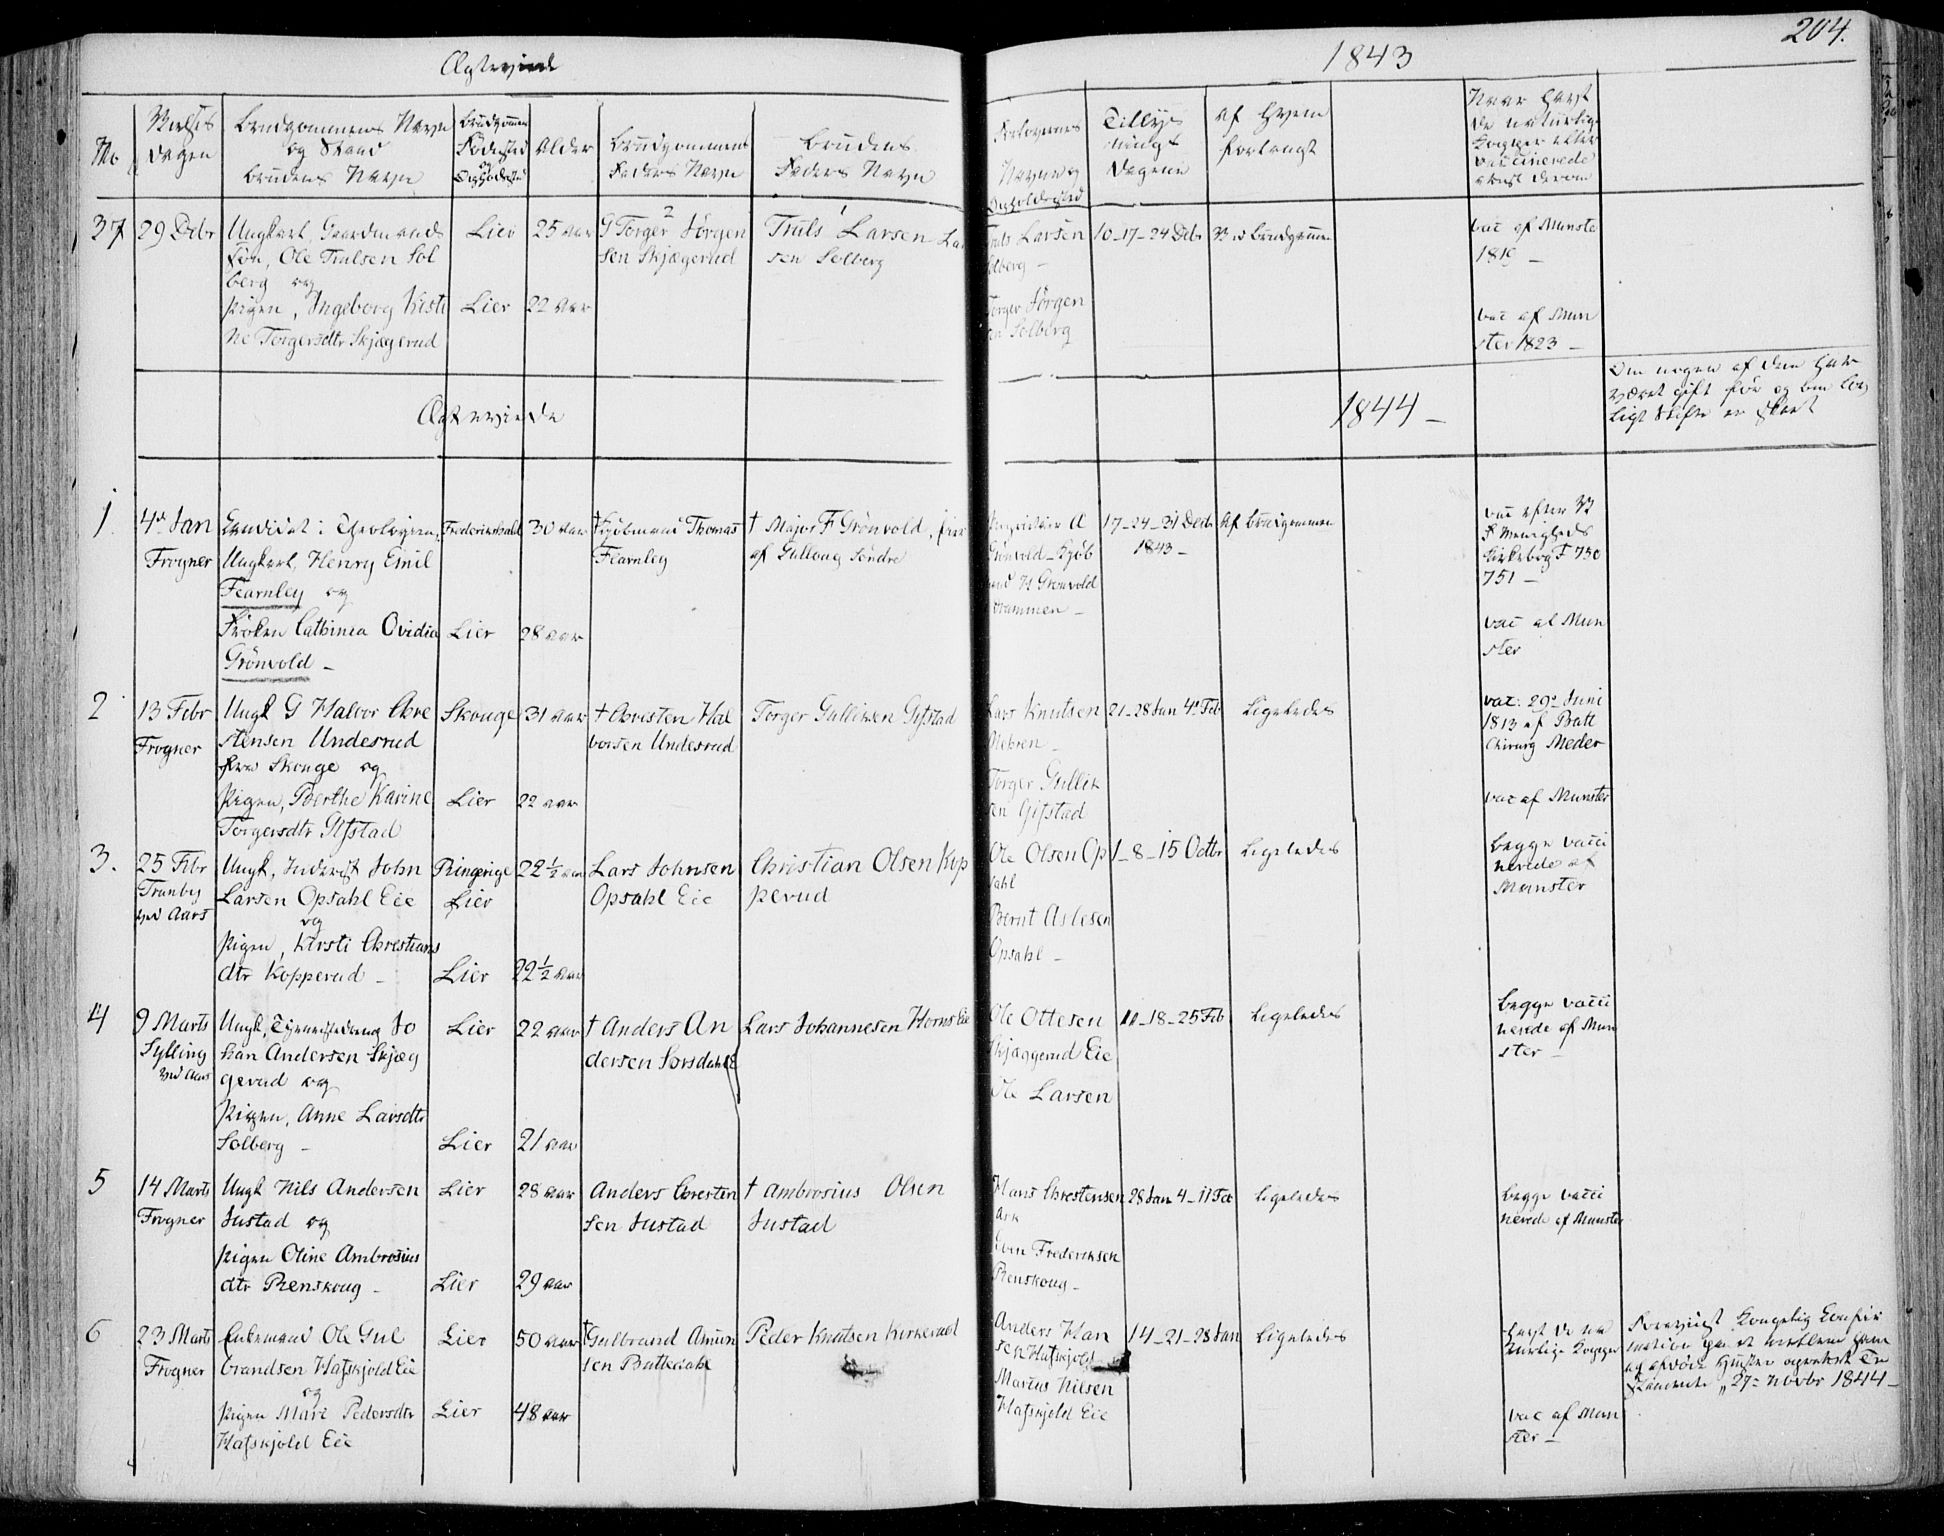 Ægteviede
1843
204.
No
Vielses
Dagen
Brudgommens Navn
og Stand
Brudens Navn
Brudgommens
Födested
og
Alder
Brudgommens
Faders Navn
Brudens
Faders Navn
Forlovernes
Navne og
Opholdssted
Tillys
nings
Dagene
af Hvem
forlangt
Naar havt
de naturlige
Kopper eller
vaccinerede
37
29 Decbr
Ungkarl, Gaardmands
Sön, Ole Trulsen Sol
berg og
Pigen, Ingeborg Kirsti
ne Torgersdtr Skjægerud
Lier
Lier
25 Aar
22 Aar
2
G Torger Jörgen
sen Skjægerud
1
Truls Larsen
sen Solberg
Truls Larsen
Solberg –
Torger Jörgen
sen Solberg
10–17–24 Deb
Brudgommen
vac af Munste
1819 –
vac af Mun
ster 1823 –
Ægteviede
1844 –
Om nogen af dem har
været gift før og om lov
ligt Skifte er skeet
1
4de Jan
Frogner
Candidat i Theologien,
Ungkarl, Henry Emil
Fearnley og
Fröken Cathinca Ovidia
Grönvold –
Frederikshald
Lier
30 Aar
28 Aar
† Kjöbmand Thomas
Fearnley
† Major F Grönvold,
af Gullaug Söndre
A
Grönvold Kjöb
mand H Grönvold
Drammen –
17–24–31 Decb
1843 –
Af Brudgommen
vac efter
Menigheds
Kirkebog F 750
751 –
vac af Mun
ster
2
13 Febr
Frogner
Ungk G Halvor Chre
stensen Undesrud
fra Skouge og
Pigen, Berthe Karine
Torgersdtr Gifstad
Skouge
Lier
31 Aar
22 Aar
† Chresten Hal
vorsen Undesrud
Torger Gulliksen Gifstad
Lars Knutsen
Mehren –
Torger Gullik
sen Gifstad
21–28 Jan 4de Feb
Ligeledes
vac: 29de Juni
1813 af Batl
Chirurg Meder
vac af Munster
3.
25 Febr
Tranby
ved Aars
Ungk, Inderst John
Larsen Opsahl Eie
og
Pigen, Kirsti Christians
dtr Kopperud –
Ringerige
Lier
Lier
22½ Aar
22½ Aar
Lars Johnsen
Opsahl Eie
Christian Olsen Kop
perud
Ole Olsen Op
sahl
Bernt Aslesen
Opsahl –
1–8–15 Octbr
Ligeledes
Begge vacci
nerede af
Munster
4
9 Marts
Sylling
ved Aars
Ungk, Tjenestedreng Jo
han Andersen Skjæg
gerud og
Pigen, Anne Larsdtr
Solberg –
Lier
Lier
22 Aar
21 Aar
† Anders An
dersen Sörsdahl E
Lars Johannesen Horns Eie
Ole Ottesen
Skjæggerud Eie
Ole Larsen
11–18–25 Feb
Ligeledes
Begge vacci
nerede af Mun
ster –
5
14 Marts
Frogner
Ungk Nils Andersen
Justad og
Pigen Oline Ambrosius
dtr Renskoug –
Lier
Lier
28 Aar
29 Aar
Anders Chresten
sen Justad
† Ambrosius Olsen
Justad
Hans Chrestensen
Ask
Even Frederiksen
Renskoug –
28 Jan 4–11 Feb
Ligeledes
Begge vacci
nerede af Munster
6
23 Marts
Frogner
Enkemand Ole Gul
brandsen Hafskjold Eie
og
Pigen Mari Pedersdtr
Hafskjold Eie
Lier
Lier
50 Aar
48 Aar
† Gulbrand Amun
sen Buttedahl
Peder Knutsen Kirkerud
Anders Han
sen Hafskjold
Marius Nilsen
Hafskjold Eie
14–21–28 Jan
Ligeledes
Havt de na
turlige Kopper
vac af Mun
ster –
Foreviist Kongelig Confir
mation paa et mellem ham
og afdöde Hustru oprettet Te
stamente, 27de Novbr 1844 –